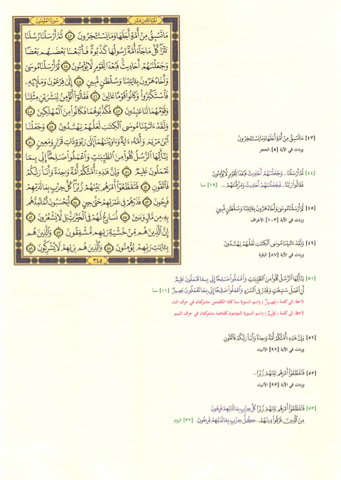 سورة المؤمنون
الجزء الثامن عشر
مَا تَسْبِقُ مِنْ أُمَّةٍ أَجَلَهَا وَمَا يَسْتَـْٔخِرُونَ ٤٣ ثُمَّ أَرْسَلْنَا رُسُلَنَا
تَتْرَا كُلَّ مَا جَآءَ أُمَّةً رَّسُولُهَا كَذَّبُوهُ فَأَتْبَعْنَا بَعْضَهُم بَعْضًا
وَجَعَلْنَٰهُمْ أَحَادِيثَ فَبُعْدًا لِّقَوْمٍ لَّا يُؤْمِنُونَ ٤٤ ثُمَّ أَرْسَلْنَا مُوسَىٰ
وَأَخَاهُ هَٰرُونَ بِـَٔايَٰتِنَا وَسُلْطَٰنٍ مُّبِينٍ ٤٥ إِلَىٰ فِرْعَوْنَ وَمَلَإِيْهِۦ
فَٱسْتَكْبَرُوا۟ وَكَانُوا۟ قَوْمًا عَالِينَ ٤٦ فَقَالُوٓا۟ أَنُؤْمِنُ لِبَشَرَيْنِ مِثْلِنَا
وَقَوْمُهُمَا لَنَا عَٰبِدُونَ ٤٧ فَكَذَّبُوهُمَا فَكَانُوا۟ مِنَ ٱلْمُهْلَكِينَ ٤٨
وَلَقَدْ ءَاتَيْنَا مُوسَى ٱلْكِتَٰبَ لَعَلَّهُمْ يَهْتَدُونَ ٤٩ وَجَعَلْنَا
ٱبْنَ مَرْيَمَ وَأُمَّهُۥٓ ءَايَةً وَءَاوَيْنَٰهُمَآ إِلَىٰ رَبْوَةٍ ذَاتِ قَرَارٍ وَمَعِينٍ ٥٠
يَٰٓأَيُّهَا ٱلرُّسُلُ كُلُوا۟ مِنَ ٱلطَّيِّبَٰتِ وَٱعْمَلُوا۟ صَٰلِحًا إِنِّى بِمَا
تَعْمَلُونَ عَلِيمٌ ٥١ وَإِنَّ هَٰذِهِۦٓ أُمَّتُكُمْ أُمَّةً وَٰحِدَةً وَأَنَا۠ رَبُّكُمْ
فَٱتَّقُونِ ٥٢ فَتَقَطَّعُوٓا۟ أَمْرَهُم بَيْنَهُمْ زُبُرًا كُلُّ حِزْبٍۭ بِمَا لَدَيْهِمْ
فَرِحُونَ ٥٣ فَذَرْهُمْ فِى غَمْرَتِهِمْ حَتَّىٰ حِينٍ ٥٤ أَيَحْسَبُونَ أَنَّمَا نُمِدُّهُم
بِهِۦ مِن مَّالٍ وَبَنِينَ ٥٥ نُسَارِعُ لَهُمْ فِى ٱلْخَيْرَٰتِ بَل لَّا يَشْعُرُونَ ٥٦
إِنَّ ٱلَّذِينَ هُم مِّنْ خَشْيَةِ رَبِّهِم مُّشْفِقُونَ ٥٧ وَٱلَّذِينَ هُم
بِـَٔايَٰتِ رَبِّهِمْ يُؤْمِنُونَ ٥٨ وَٱلَّذِينَ هُم بِرَبِّهِمْ لَا يُشْرِكُونَ ٥٩
٣٤٥
[٤٣] مَا تَسْبِقُ مِنْ أُمَّةٍ أَجَلَهَا وَمَا يَسْتَـْٔخِرُونَ
وردت في الآية [٥] الحجر
[٤٤] ثُمَّ أَرْسَلْنَا... وَجَعَلْنَٰهُمْ أَحَادِيثَ فَبُعْدًا لِّقَوْمٍ لَّا يُؤْمِنُونَ
فَقَالُوا۟ رَبَّنَا... فَجَعَلْنَٰهُمْ أَحَادِيثَ وَمَزَّقْنَٰهُمْ... [١٩] سبأ
[٤٥] ثُمَّ أَرْسَلْنَا مُوسَىٰ وَأَخَاهُ هَٰرُونَ بِـَٔايَٰتِنَا وَسُلْطَٰنٍ مُّبِينٍ
وردت في الآية [١٠٣] الأعراف
[٤٩] وَلَقَدْ ءَاتَيْنَا مُوسَى ٱلْكِتَٰبَ لَعَلَّهُمْ يَهْتَدُونَ
وردت في الآية [٨٧] البقرة
[٥١] يَٰٓأَيُّهَا ٱلرُّسُلُ كُلُوا۟ مِنَ ٱلطَّيِّبَٰتِ وَٱعْمَلُوا۟ صَٰلِحًا إِنِّى بِمَا تَعْمَلُونَ عَلِيمٌ
أَنِ ٱعْمَلْ سَٰبِغَٰتٍ وَقَدِّرْ فِى ٱلسَّرْدِ وَٱعْمَلُوا۟ صَٰلِحًا إِنِّى بِمَا تَعْمَلُونَ بَصِيرٌ [١١] سبأ
لاحظ إن كلمة (بصير) واسم السورة سبأ كلا الكلمتين مشتركتان في حرف الباء
لاحظ إن كلمة (عليم) واسم السورة المؤمنون كلتاهما مشتركتان في حرف الميم
[٥٢] وَإِنَّ هَٰذِهِۦٓ أُمَّتُكُمْ أُمَّةً وَٰحِدَةً وَأَنَا۠ رَبُّكُمْ فَٱتَّقُونِ
وردت في الآية [٩٢] الأنبياء
[٥٣] فَتَقَطَّعُوٓا۟ أَمْرَهُم بَيْنَهُمْ زُبُرًا...
وردت في الآية [٩٣] الأنبياء
[٥٣] فَتَقَطَّعُوٓا۟ أَمْرَهُم بَيْنَهُمْ زُبُرًا كُلُّ حِزْبٍۭ بِمَا لَدَيْهِمْ فَرِحُونَ
مِنَ ٱلَّذِينَ فَرَّقُوا۟ دِينَهُمْ... كُلُّ حِزْبٍۭ بِمَا لَدَيْهِمْ فَرِحُونَ [٣٢] الروم